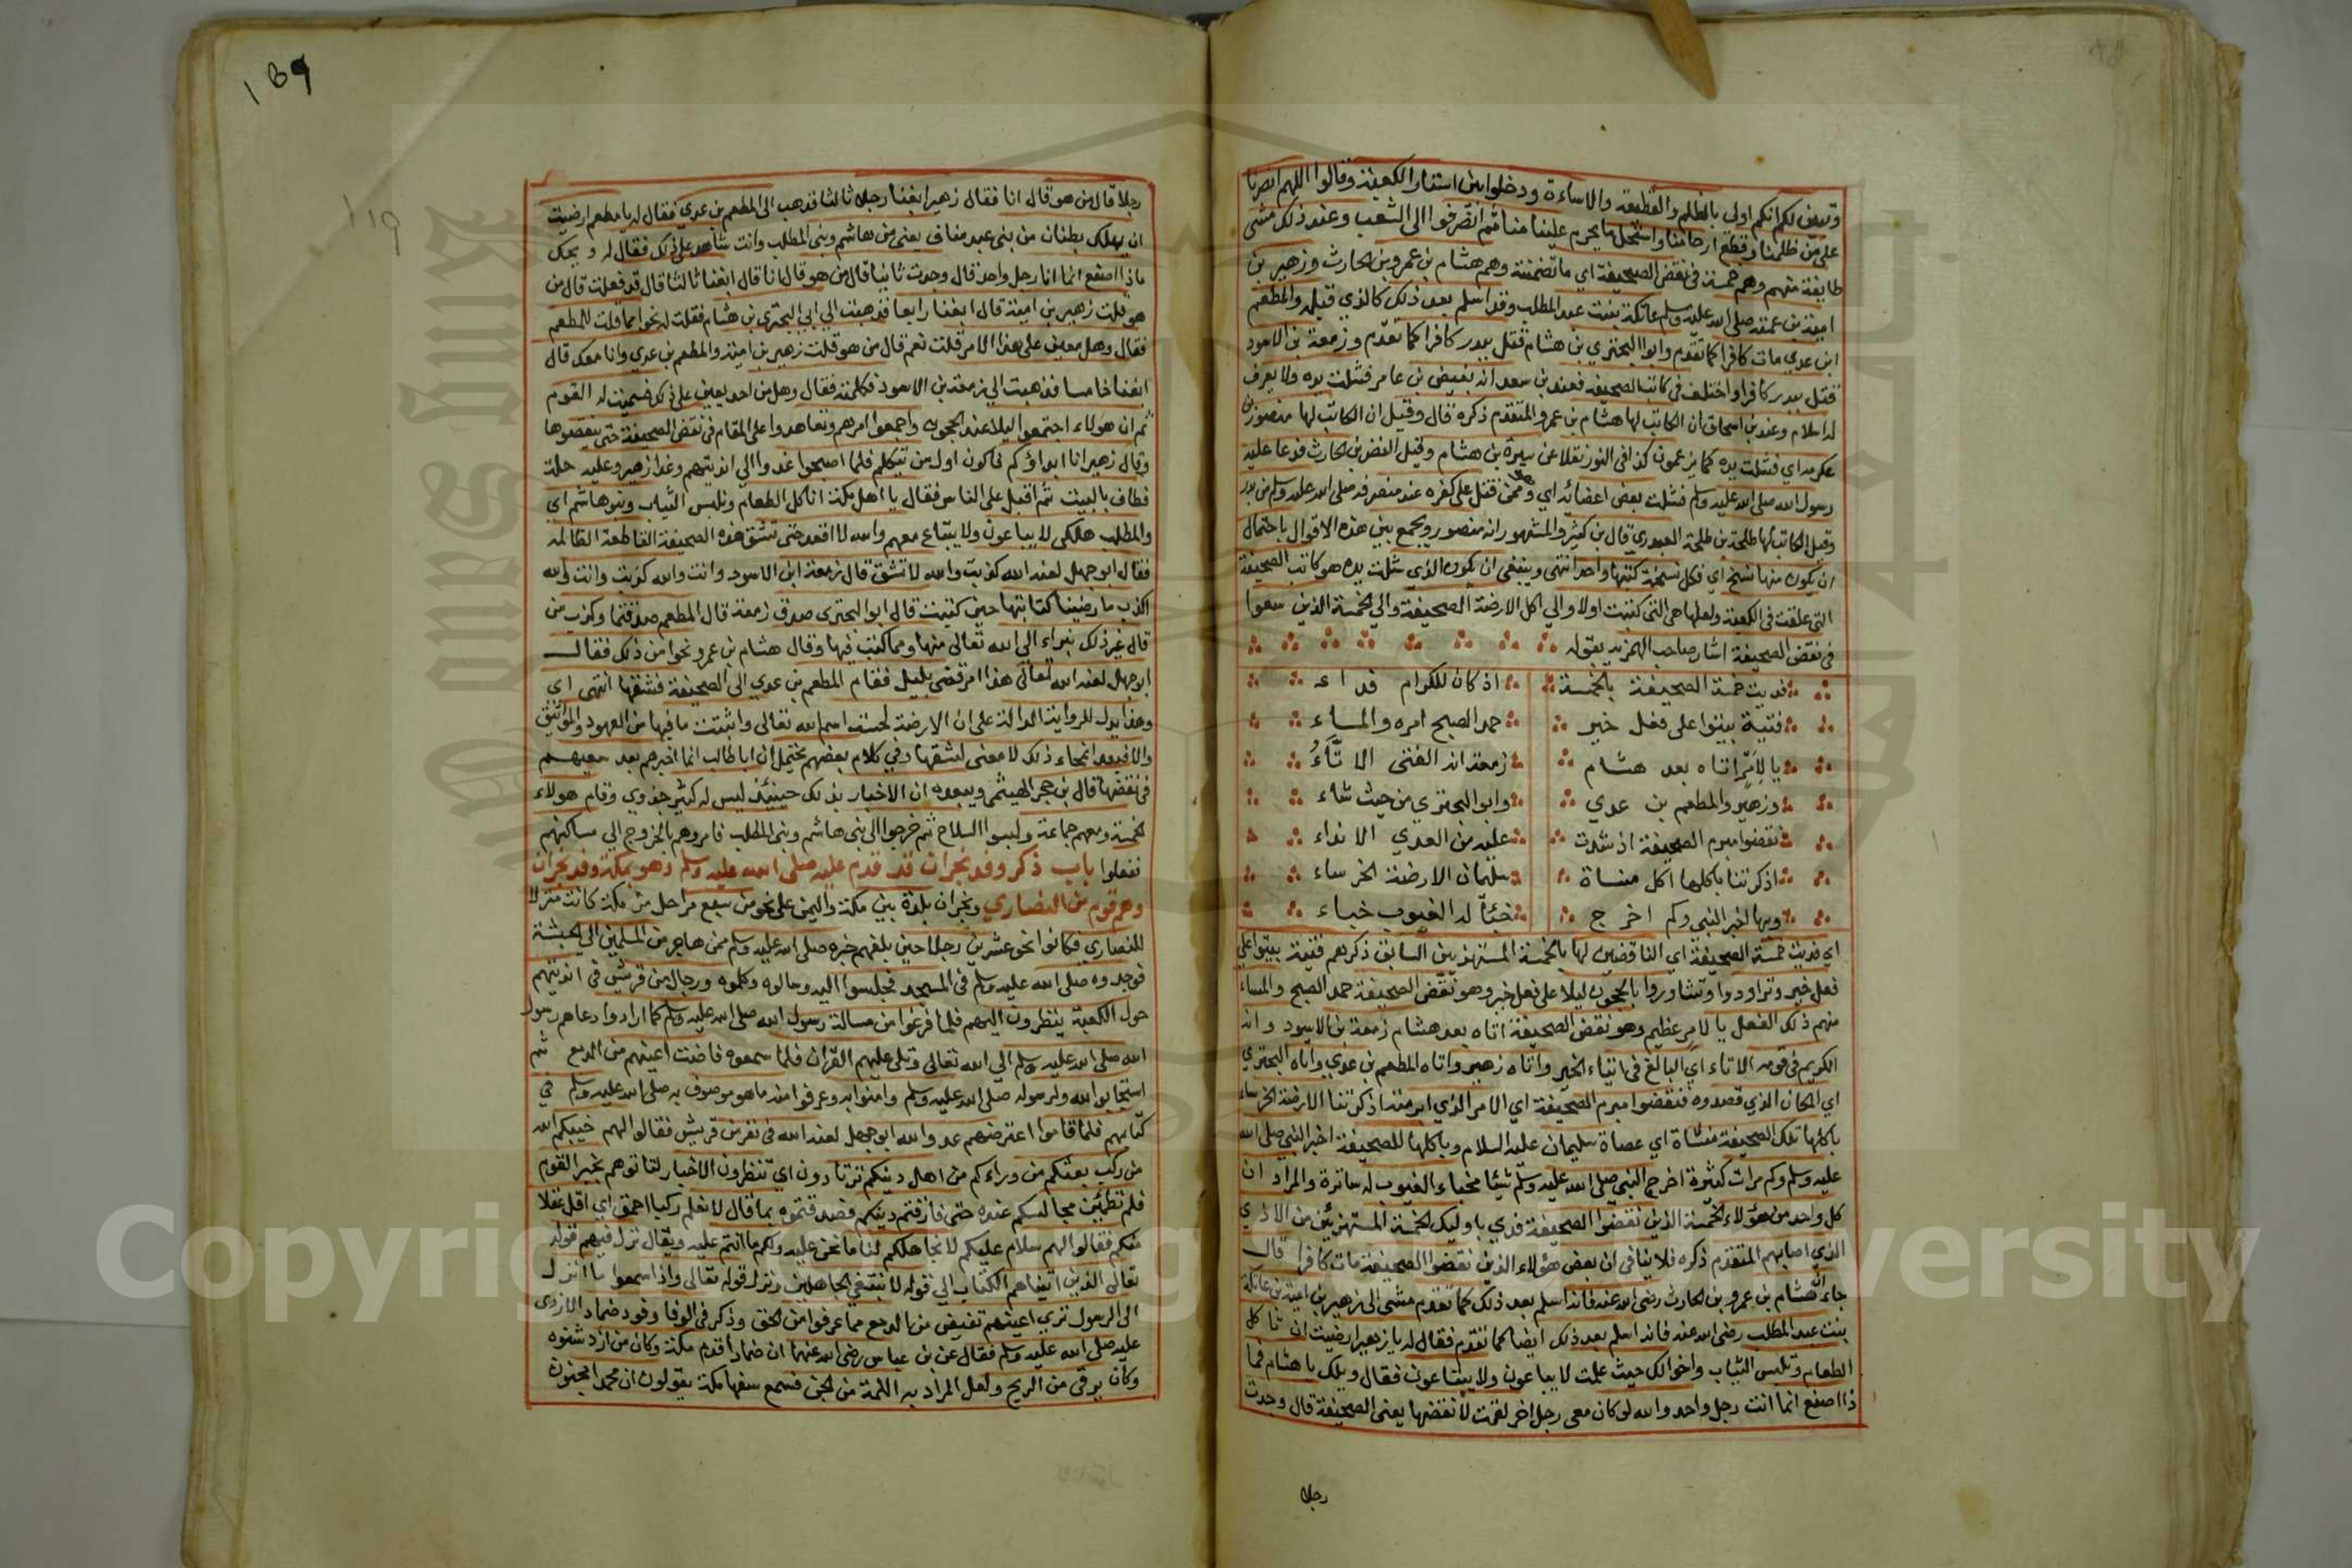 وتبين لكم انكم اولى بالظلم والقطيعة والاساءة ودخلوا بين استار الكعبة وقالوا اللهم انصرنا
على من ظلمنا وقطع ارحامنا واستحل ما يحرم عليه منا ثم انصرفوا الى الشعب وعند ذلك مشى
طايفة منهم وهم خمسة في نقض الصحيفة اي ما تضمنته وهم هشام بن عمرو بن الحارث وزهير بن
امية بن عمته صلى الله عليه وسلم عاتكة بنت عبد المطلب وقد اسلم بعد ذلك كالذي قبله والمطعم
ابن عدي مات كافرا كما تقدم وابو البختري بن هشام قتل ببدر كافرا كما تقدم وزمعة بن الاسود
قتل ببدر كافرا واختلف في كاتب الصحيفة فعند بن سعد انه بغيض بن عامر فشلت يده ولا يعرف
له اسلام وعند بن اسحاق ان الكاتب لها هشام بن عمرو المتقدم ذكره قال وقيل ان الكاتب لها منصور بن
عكرمه اي فشلت يده كما يزعمون كذا في النور نقلا عن سيرة بن هشام وقيل النضر بن الحارث فدعا عليه
رسول الله صلى الله عليه وسلم فشلت بعض اعضائه اي وممن قتل على كفره عند منصرفه صلى الله عليه وسلم من بدر
وقيل الكاتب لها طلحة بن طلحة العبدري قال بن كثير والمشهور انه منصور ويجمع بين هذه الاقوال باحتمال
ان يكون منها نسخ اي فكل نسخة كتبها واحد انتهى وينبغي ان يكون الذي شلت يده هو كاتب الصحيفة
التي علقت في الكعبة ولعلها هي التي كتبت اولا والى اكل الارضة الصحيفة والى الخمسة الذين سعوا
في نقض الصحيفة اشار صاحب الهمزيه بقوله
فديت خمسة الصحيفة بالخمسة اذ كان للكرام فداء
فتية بيتوا على فعل خير حمد الصبح امره والمساء
يا لامر اتاه بعد هشام زمعة انه الفتى الاتاء
وزهير والمطعم بن عدي وابو البختري من حيث شاء
نقضوا مبرم الصحيفة اذ شدت عليه من العدي الانداء
اذكرتنا باكلها اكل منساة سليمان الارضة الخرساء
وبها اخبر النبي وكم اخرج خبأ له الغيوب خباء
اي فديت خمسة الصحيفة اي الناقضين لها بالخمسة المستهزئين السابق ذكرهم فتية بيتوا على
فعل خير وتراودوا وتشاوروا بالحجون ليلا على فعل خير وهو نقض الصحيفة حمد الصبح والمساء
منهم ذلك الفعل يا لامر عظيم وهو نقض الصحيفة اتاه بعد هشام زمعة بن الاسود وانه
الكريم في قومه الاتاء اي البالغ في ايتاء الخير واتاه زهير واتاه المطعم بن عدي واتاه البختري
اي المكان الذي قصدوه فنقضوا مبرم الصحيفة اي الامر الذي ابرمته اذكرتنا الارضة الخرساء
باكلها تلك الصحيفة منساة اي عصاة سليمان عليه السلام وباكلها للصحيفة اخبر النبي صلى الله
عليه وسلم وكم مرات كثيرة اخرج النبي صلى الله عليه وسلم شيئا مخباء الغيوب له ساترة والمراد ان
كل واحد من هؤلاء الخمسة الذين نقضوا الصحيفة فدي باوليك الخمسة المستهزئين من الاذي
الذي اصابهم المتقدم ذكره فلا ينافي ان بعض هؤلاء الذين نقضوا الصحيفة مات كافرا قال
جاء ان هشام بن عمرو بن الحارث رضي الله عنه فانه اسلم بعد ذلك كما تقدم مشى الى زهير بن امية بن عاتكة
بنت عبد المطلب رضي الله عنه فانه اسلم بعد ذلك ايضا كما تقدم فقال له يا زهير ارضيت ان تاكل
الطعام وتلبس الثياب واخوالك حيث علمت لا يبتاعون ولا يبتاعون فقال ويلك يا هشام فما
ذا اصنع انما انت رجل واحد والله لو كان معي رجل اخر لقمت لانقضها يعني الصحيفة قال وجدت
رجلا
139
119
رجلا قال من هو قال انا فقال زهير ابغنا رجلا ثالثا فذهب الى المطعم بن عدي فقال له يا مطعم ارضيت
ان يهلك بطنان من بني عبد مناف يعني من بني هاشم وبني المطلب وانت شاهد على ذلك فقال له ويحك
ماذا اصنع انما انا رجل واحد قال وجدت ثانيا قال من هو قال انا قال ابغنا ثالثا قال قد فعلت قال من
هو قلت زهير بن امية قال ابغنا رابعا فذهبت الى ابي البختري بن هشام فقلت له نحوا مما قلت للمطعم
فقال وهل معين على هذا الامر قلت نعم قال من هو قلت زهير بن امية والمطعم بن عدي وانا معك قال
ابغنا خامسا فذهبت الى زمعة بن الاسود فكلمته فقال وهل من احد يعين على ذلك فسميت له القوم
ثم ان هولاء اجتمعوا ليلا عند الحجون واجمعوا امرهم وتعاهدوا على المقام في نقض الصحيفة حتى ينقضوها
وقال زهير انا ابداؤكم فاكون اول من يتكلم فلما اصبحوا غدوا الى انديتهم وغدا زهير وعليه حلة
فطاف بالبيت ثم اقبل على الناس فقال يا اهل مكة اناكل الطعام ونلبس الثياب وبنو هاشم اي
والمطلب هلكى لا يباعون ولا يبتاع معهم والله لا اقعد حتى تشق هذه الصحيفة القاطعة الظالمه
فقال ابو جهل لعنه الله كذبت والله لا تشق قال زمعة ابن الاسود وانت والله كذبت وانت والله
اكذب ما رضينا كتابتها حين كتبت قال ابو البختري صدق زمعة قال المطعم صدقتما وكذب من
قال غير ذلك نبراء الى الله تعالى منها ومما كتب فيها وقال هشام بن عمرو نحوا من ذلك فقال
ابو جهل لعنه الله تعالى هذا امر قضي بليل فقام المطعم بن عدي الى الصحيفة فشقها انتهى اي
وهذا يدل للرواية الدالة على ان الارضة لحست اسم الله تعالى واثبتت ما فيها من العهود والمواثيق
والا فبعد انمحاء ذلك لا معنى لشقها وفي كلام بعضهم يحتمل ان ابا طالب انما اخبرهم بعد سعيهم
في نقضها قال بن حجر الهيثمي ويبعده ان الاخبار بذلك حينئذ ليس له كثير جدوي وقام هولاء
الخمسة ومعهم جماعة ولبسوا السلاح ثم خرجوا الى بني هاشم وبني المطلب فامروهم بالخروج الى مساكنهم
ففعلوا باب ذكر وفد نجران قد قدم عليه صلى الله عليه وسلم وهو بمكة وفد نجران
وهم قوم من النصاري ونجران بلدة بين مكة واليمن على نحو من سبع مراحل من مكة كانت منزلا
للنصاري فكانوا نحو عشرين رجلا حين بلغهم خبره صلى الله عليه وسلم ممن هاجر من المسلمين الى الحبشة
فوجدوه صلى الله عليه وسلم في المسجد فجلسوا اليه وسالوه وكلموه ورجال من قريش في انديتهم
حول الكعبة ينظرون اليهم فلما فرغوا من مسالة رسول الله صلى الله عليه وسلم كما ارادوا دعاهم رسول
الله صلى الله عليه وسلم الى الله تعالى وتلى عليهم القرآن فلما سمعوه فاضت اعينهم من الدمع ثم
استجابوا لله ولرسوله صلى الله عليه وسلم وامنوا به وعرفوا منه ما هو موصوف به صلى الله عليه وسلم في
كتابهم فلما قاموا اعترضهم عدو الله ابو جهل لعنه الله في نفر من قريش فقالوا لهم خيبكم الله
من ركب بعثكم من وراءكم من اهل دينكم ترتادون اي تنظرون الاخبار لتاتوهم بخبر القوم
فلم تطمئن مجالسكم عنده حتى فارقتم دينكم فصدقتموه بما قال لا نعلم ركبا احمق اي اقل عقلا
منكم فقالوا لهم سلام عليكم لا نجاهلكم لنا ما نحن عليه ولكم ما انتم عليه ويقال نزل فيهم قوله
تعالى الذين اتيناهم الكتاب الى قوله لا نبتغي الجاهلين ونزل قوله تعالى واذا سمعوا ما انزل
الى الرسول ترى اعينهم تفيض من الدمع مما عرفوا من الحق وذكر في الوفا وفود ضماد الازدي
عليه صلى الله عليه وسلم فقال عن بن عباس رضي الله عنهما ان ضمادا قدم مكة وكان من ازد شنوه
وكان يرقي من الريح ولعل المراد به اللمة من الجن فسمع سفهاء مكة يقولون ان محمدا مجنون
King Saud University
Copyright © King Saud University